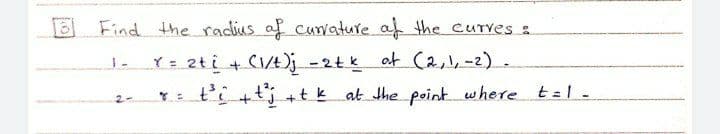 3 Find the radius of curvature of the curves :
1- r = 2t i + (1/t)j - 2t k at (2,1,-2) .
2- r = t³i + t²j + t k at the point where t=1 .